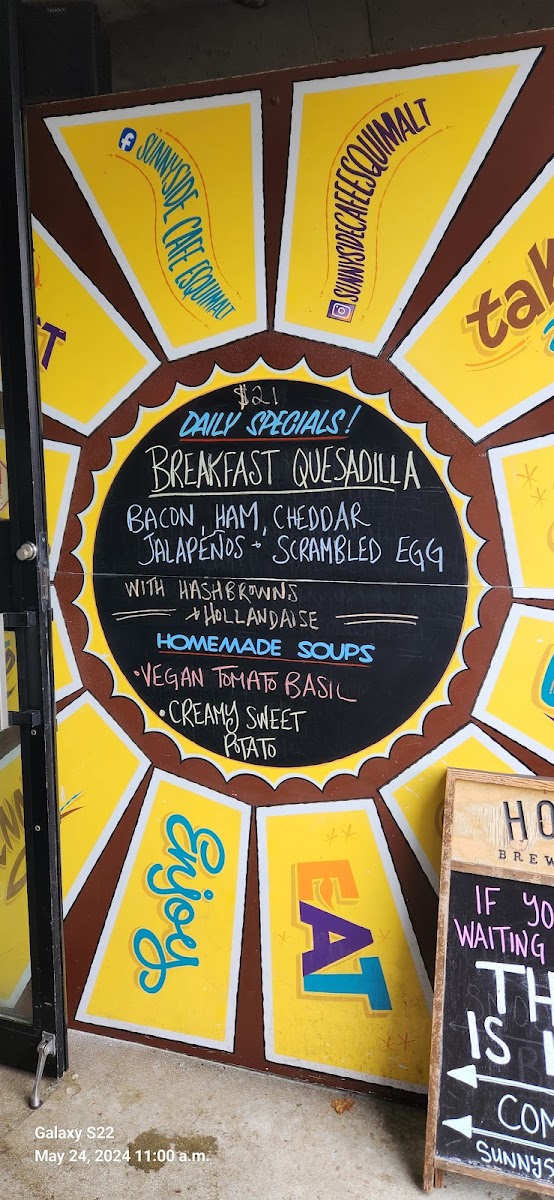 SUNNYSIDE CAFE ESQUIMALT
SUNNYSIDECAFEESQUIMALT
tak
$21
DAILY SPECIALS!
BREAKFAST QUESADILLA
BACON, HAM, CHEDDAR
JALAPEÑOS + SCRAMBLED EGG
WITH HASHBROWNS
+ HOLLANDAISE
HOMEMADE SOUPS
• VEGAN TOMATO BASIL
• CREAMY SWEET
POTATO
Enjoy
EAT
HO
BREW
IF YO
WAITING
TH
IS
COM
SUNNYS
Galaxy S22
May 24, 2024 11:00 a.m.